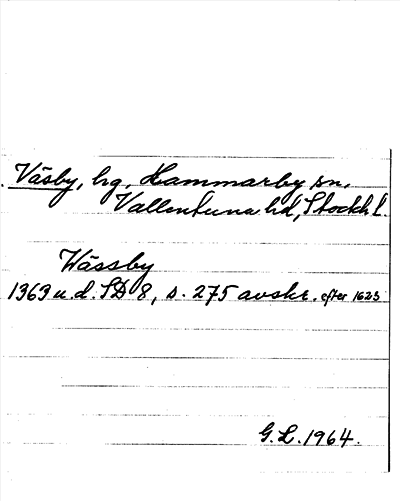 Väsby, hg, Hammarby sn,
Vallentuna hd, Stockh. l.
Wässby
1363 u.d. SD 8, s. 275 avskr. efter 1623
G.L. 1964.